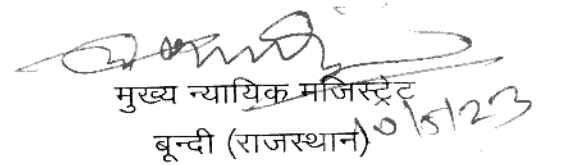 मुख्य न्यायिक मजिस्ट्रेट
बून्दी (राजस्थान) 10/5/23